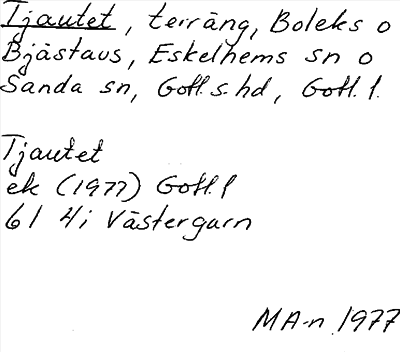 Tjautet, terräng, Boleks o
Bjästavs, Eskelhems sn o
Sanda sn, Gotl. s. hd, Gotl. l.
Tjautet
ek (1977) Gotl. l
6I 4i Västergarn
MA-n 1977